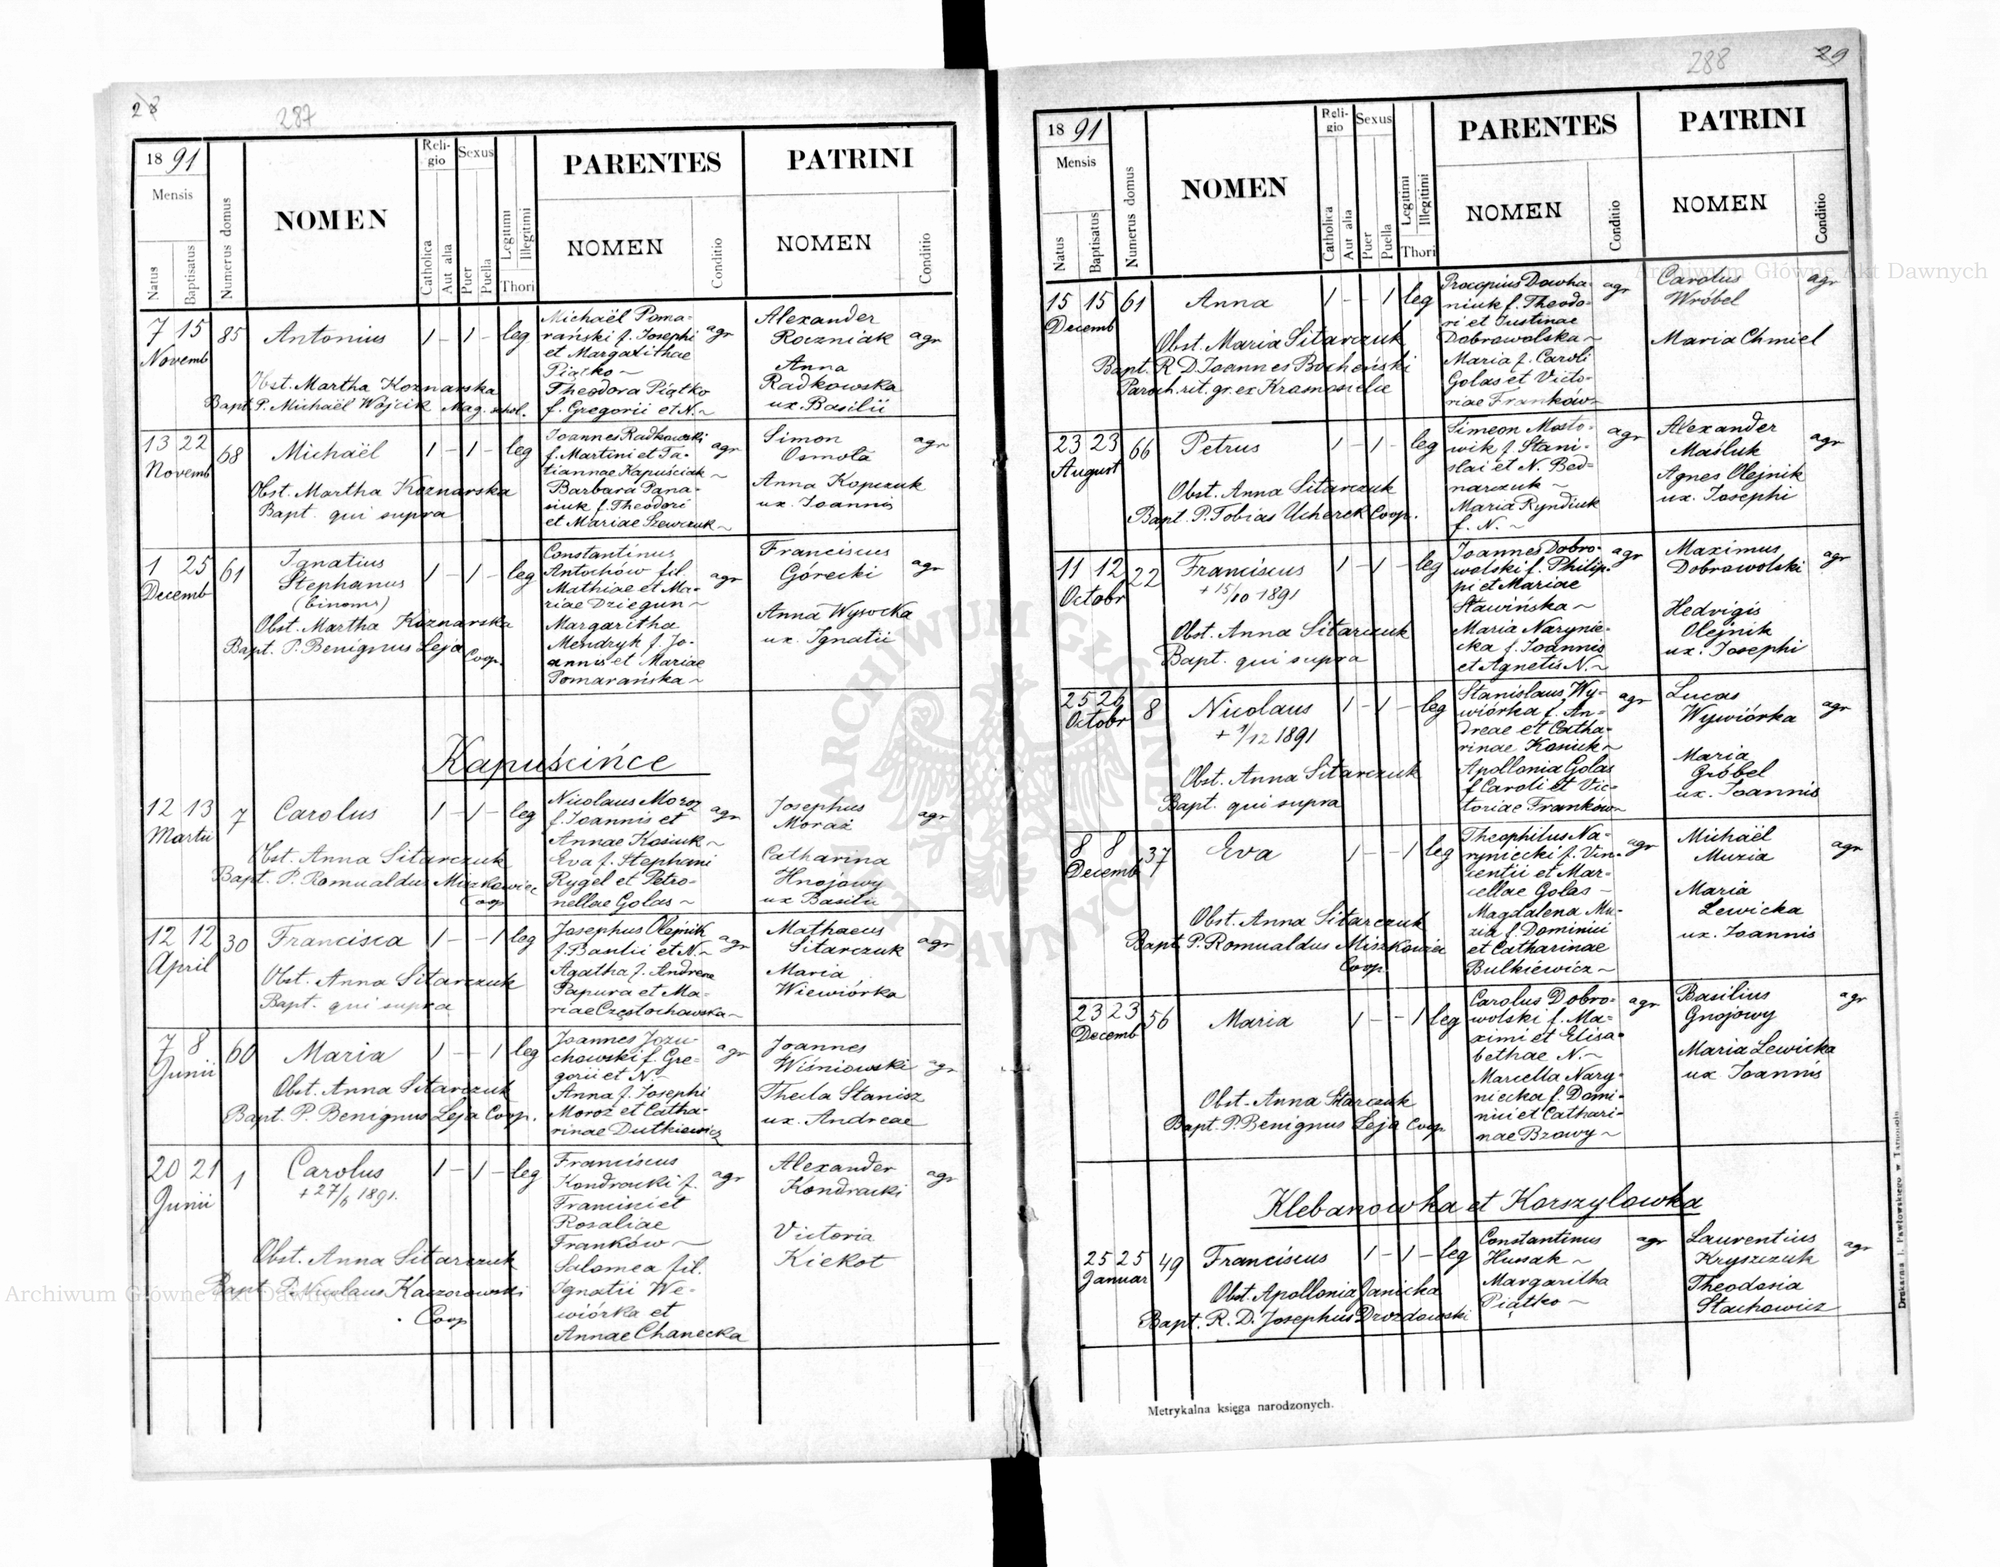 28
287
1891
Mensis
Natus
Baptisatus
Numerus domus
NOMEN
Reli-
gio
Catholica
Aut alia
Sexus
Puer
Puella
Legitimi
Illegitimi
Thori
PARENTES
NOMEN
Conditio
PATRINI
NOMEN
Conditio
7 15 85 Antonius 1 - 1 - leg
Novemb
Obst. Martha Koznarska
Bapt. P. Michaël Wójcik Mag. schol.
Michaël Poma-
rański f. Josephi
et Margarithae
Piątko ~
Theodora Piątko
f. Gregorii et N. ~
agr
Alexander
Roczniak
Anna
Radkowska
ux. Basilii
agr
13 22 68 Michaël 1 - 1 - leg
Novemb
Obst. Martha Koznarska
Bapt. qui supra
Joannes Radkowski
f. Martini et Ta-
tiannae Kapuściak ~
Barbara Pana-
siuk f. Theodori
et Mariae Szewczuk ~
agr
Simon
Osmola
Anna Kopczuk
ux. Joannis
agr
1 25 61 Ignatius
Stephanus
(binoms)
1 - 1 - leg
Decemb
Obst. Martha Koznarska
Bapt. P. Benignus Leja Coop.
Constantinus
Antochów fil.
Mathiae et Ma-
riae Dziegun ~
Margaritha
Mendryk f. Jo-
annis et Mariae
Pomarańska ~
agr
Franciscus
Górecki
Anna Wysocka
ux. Ignatii
agr
Kapuścińce
12 13 7 Carolus 1 - 1 - leg
Martii
Obst. Anna Sitarczuk
Bapt. P. Romualdus Miszkowiec
Coop
Nicolaus Moroz
f. Joannis et
Annae Kosiuk ~
Eva f. Stephani
Rygel et Petro-
nellae Golas ~
agr
Josephus
Moraz
Catharina
Hnojowy
ux Basilii
agr
12 12 30 Francisca 1 - - 1 leg
April
Obst. Anna Sitarczuk
Bapt. qui supra
Josephus Olejnik
f. Basilii et N. ~
Agatha f. Andreae
Papura et Ma-
riae Częstochowska ~
agr
Mathaeus
Sitarczuk
Maria
Wiewiórka
agr
7 8 60 Maria 1 - - 1 leg
Junii
Obst. Anna Sitarczuk
Bapt. P. Benignus Leja Coop.
Joannes Jozu-
chowski f. Gre-
gorii et N ~
Anna f. Josephi
Moroz et Catha-
rinae Dutkiewicz
agr
Joannes
Wiśniowski
Thecla Stanisz
ux. Andreae
agr
20 21 1 Carolus 1 - 1 - leg
+ 27/6 1891.
Junii
Obst. Anna Sitarczuk
Bapt. P. Nicolaus Kaczorowski
Coop
Franciscus
Kondracki f.
Francisci et
Rosaliae
Franków ~
Salomea fil.
Ignatii We-
wiórka et
Annae Chanecka
agr
Alexander
Kondracki
Victoria
Kiekot
agr
288
29
1891
Mensis
Natus
Baptisatus
Numerus domus
NOMEN
Reli-
gio
Catholica
Aut alia
Sexus
Puer
Puella
Legitimi
Illegitimi
Thori
PARENTES
NOMEN
Conditio
PATRINI
NOMEN
Conditio
15 15 61 Anna 1 - - 1 leg
Decemb
Obst. Maria Sitarczuk
Bapt. R. D. Joannes Bocheński
Paroch. rit. gr. ex Krasnosielce
Procopius Dowha-
niuk f. Theodo-
ri et Justinae
Dobrowolska ~
Maria f. Caroli
Golas et Victo-
riae Franków ~
agr
Carolus
Wróbel
Maria Chmiel
agr
23 23 66 Petrus 1 - 1 - leg
August
Obst. Anna Sitarczuk
Bapt. P. Tobias Ucherek Coop.
Simeon Mosto-
wik f. Stani-
slai et N. Bed-
narczuk ~
Maria Ryndiuk
f. N. ~
agr
Alexander
Maśluk
Agnes Olejnik
ux. Josephi
agr
11 12 22 Franciscus 1 - 1 - leg
+ 15/10 1891
Octobr
Obst. Anna Sitarczuk
Bapt. qui supra
Joannes Dobro-
wolski f. Philip-
pi et Mariae
Sławińska ~
Maria Narynie-
cka f. Joannis
et Agnetis N. ~
agr
Maximus
Dobrowolski
Hedvigis
Olejnik
ux. Josephi
agr
25 26 8 Nicolaus 1 - 1 - leg
+ 1/12 1891
Octobr
Obst. Anna Sitarczuk
Bapt. qui supra
Stanislaus Wy-
wiórka f. An-
dreae et Catha-
rinae Kosiuk ~
Apollonia Golas
f Caroli et Vic-
toriae Franków ~
agr
Lucas
Wywiórka
Maria
Gróbel
ux. Joannis
agr
8 8 37 Eva 1 - - 1 leg
Decemb
Obst. Anna Sitarczuk
Bapt. P. Romualdus Miszkowic
Coop.
Theophilus Na-
ryniecki f. Vin-
centii et Mar-
cellae Golas -
Magdalena Mu-
zia f. Dominici
et Catharinae
Bulkiewicz ~
agr
Michaël
Muzia
Maria
Lewicka
ux. Joannis
agr
23 23 56 Maria 1 - - 1 leg
Decemb
Obst. Anna Sitarczuk
Bapt. P. Benignus Leja Coop
Carolus Dobro-
wolski f. Ma-
ximi et Elisa-
bethae N. ~
Marcella Nary-
niecka f. Domi-
nici et Cathari-
nae Bzowy ~
agr
Basilius
Gnojowy
Maria Lewicka
ux Joannis
agr
Klebanowka et Korszylowka
25 25 49 Franciscus 1 - 1 - leg
Januar
Obst. Apollonia Janicka
Bapt. R. D. Josephus Drozdowski
Constantinus
Husak ~
Margaritha
Piątko ~
agr
Laurentius
Kryszczuk
Theodosia
Stachowicz
agr
Metrykalna księga narodzonych.
Drukarnia J. Pawłowskiego w Tarnopolu.
Archiwum Główne Akt Dawnych
Archiwum Główne Akt Dawnych
ARCHIWUM GŁÓWNE AKT DAWNYCH